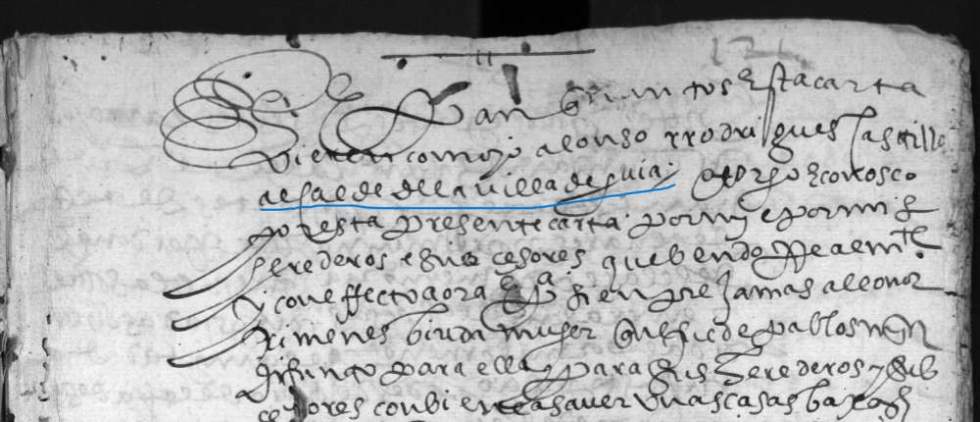 Sepan quantos esta carta
vieren como yo alonso rrodrigues castillo
alcalde de la villa de guia otorgo e conosco
por esta presente carta por my e por mis
herederos e subcesores que bendo rrealmte
y con effecto agora e pa sienpre Jamas a leonor
ximenes biuda muger que fue de pablos mrn
difunto para ella y para sus herederos y sub
cesores conbiene a saver unas casas baxas